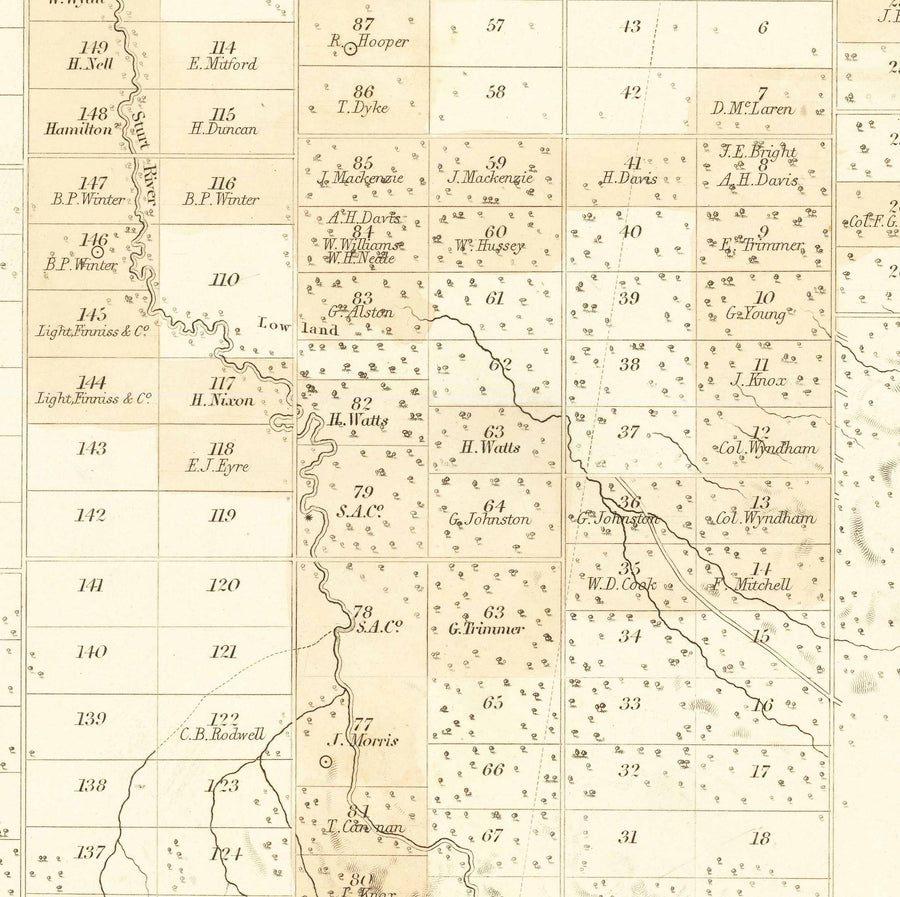 149
H. Nell
114
E. Mitford
87
R. Hooper
57
43
6
148
Hamilton
115
H. Duncan
86
T. Dyke
58
42
7
D. McLaren
Sturt
River
147
B.P. Winter
116
B.P. Winter
85
J. Mackenzie
59
J. Mackenzie
41
H. Davis
J.E. Bright
8
A.H. Davis
146
B.P. Winter
110
A.H. Davis
84
W. Williams
W.H. Neale
60
Wm. Hussey
40
9
E. Trimmer
Col. F.G.
145
Light, Finniss & Co.
Low land
83
Geo. Alston
61
39
10
G. Young
144
Light, Finniss & Co.
117
H. Nixon
82
H. Watts
62
38
11
J. Knox
143
118
E.J. Eyre
63
H. Watts
37
12
Col. Wyndham
142
119
79
S.A.Co.
64
G. Johnston
36
G. Johnston
13
Col. Wyndham
141
120
35
W.D. Cook
14
F. Mitchell
140
121
78
S.A.Co.
63
G. Trimmer
34
15
139
122
C.B. Rodwell
77
J. Morris
65
33
16
138
123
66
32
17
137
124
81
T. Cannan
67
31
18
80